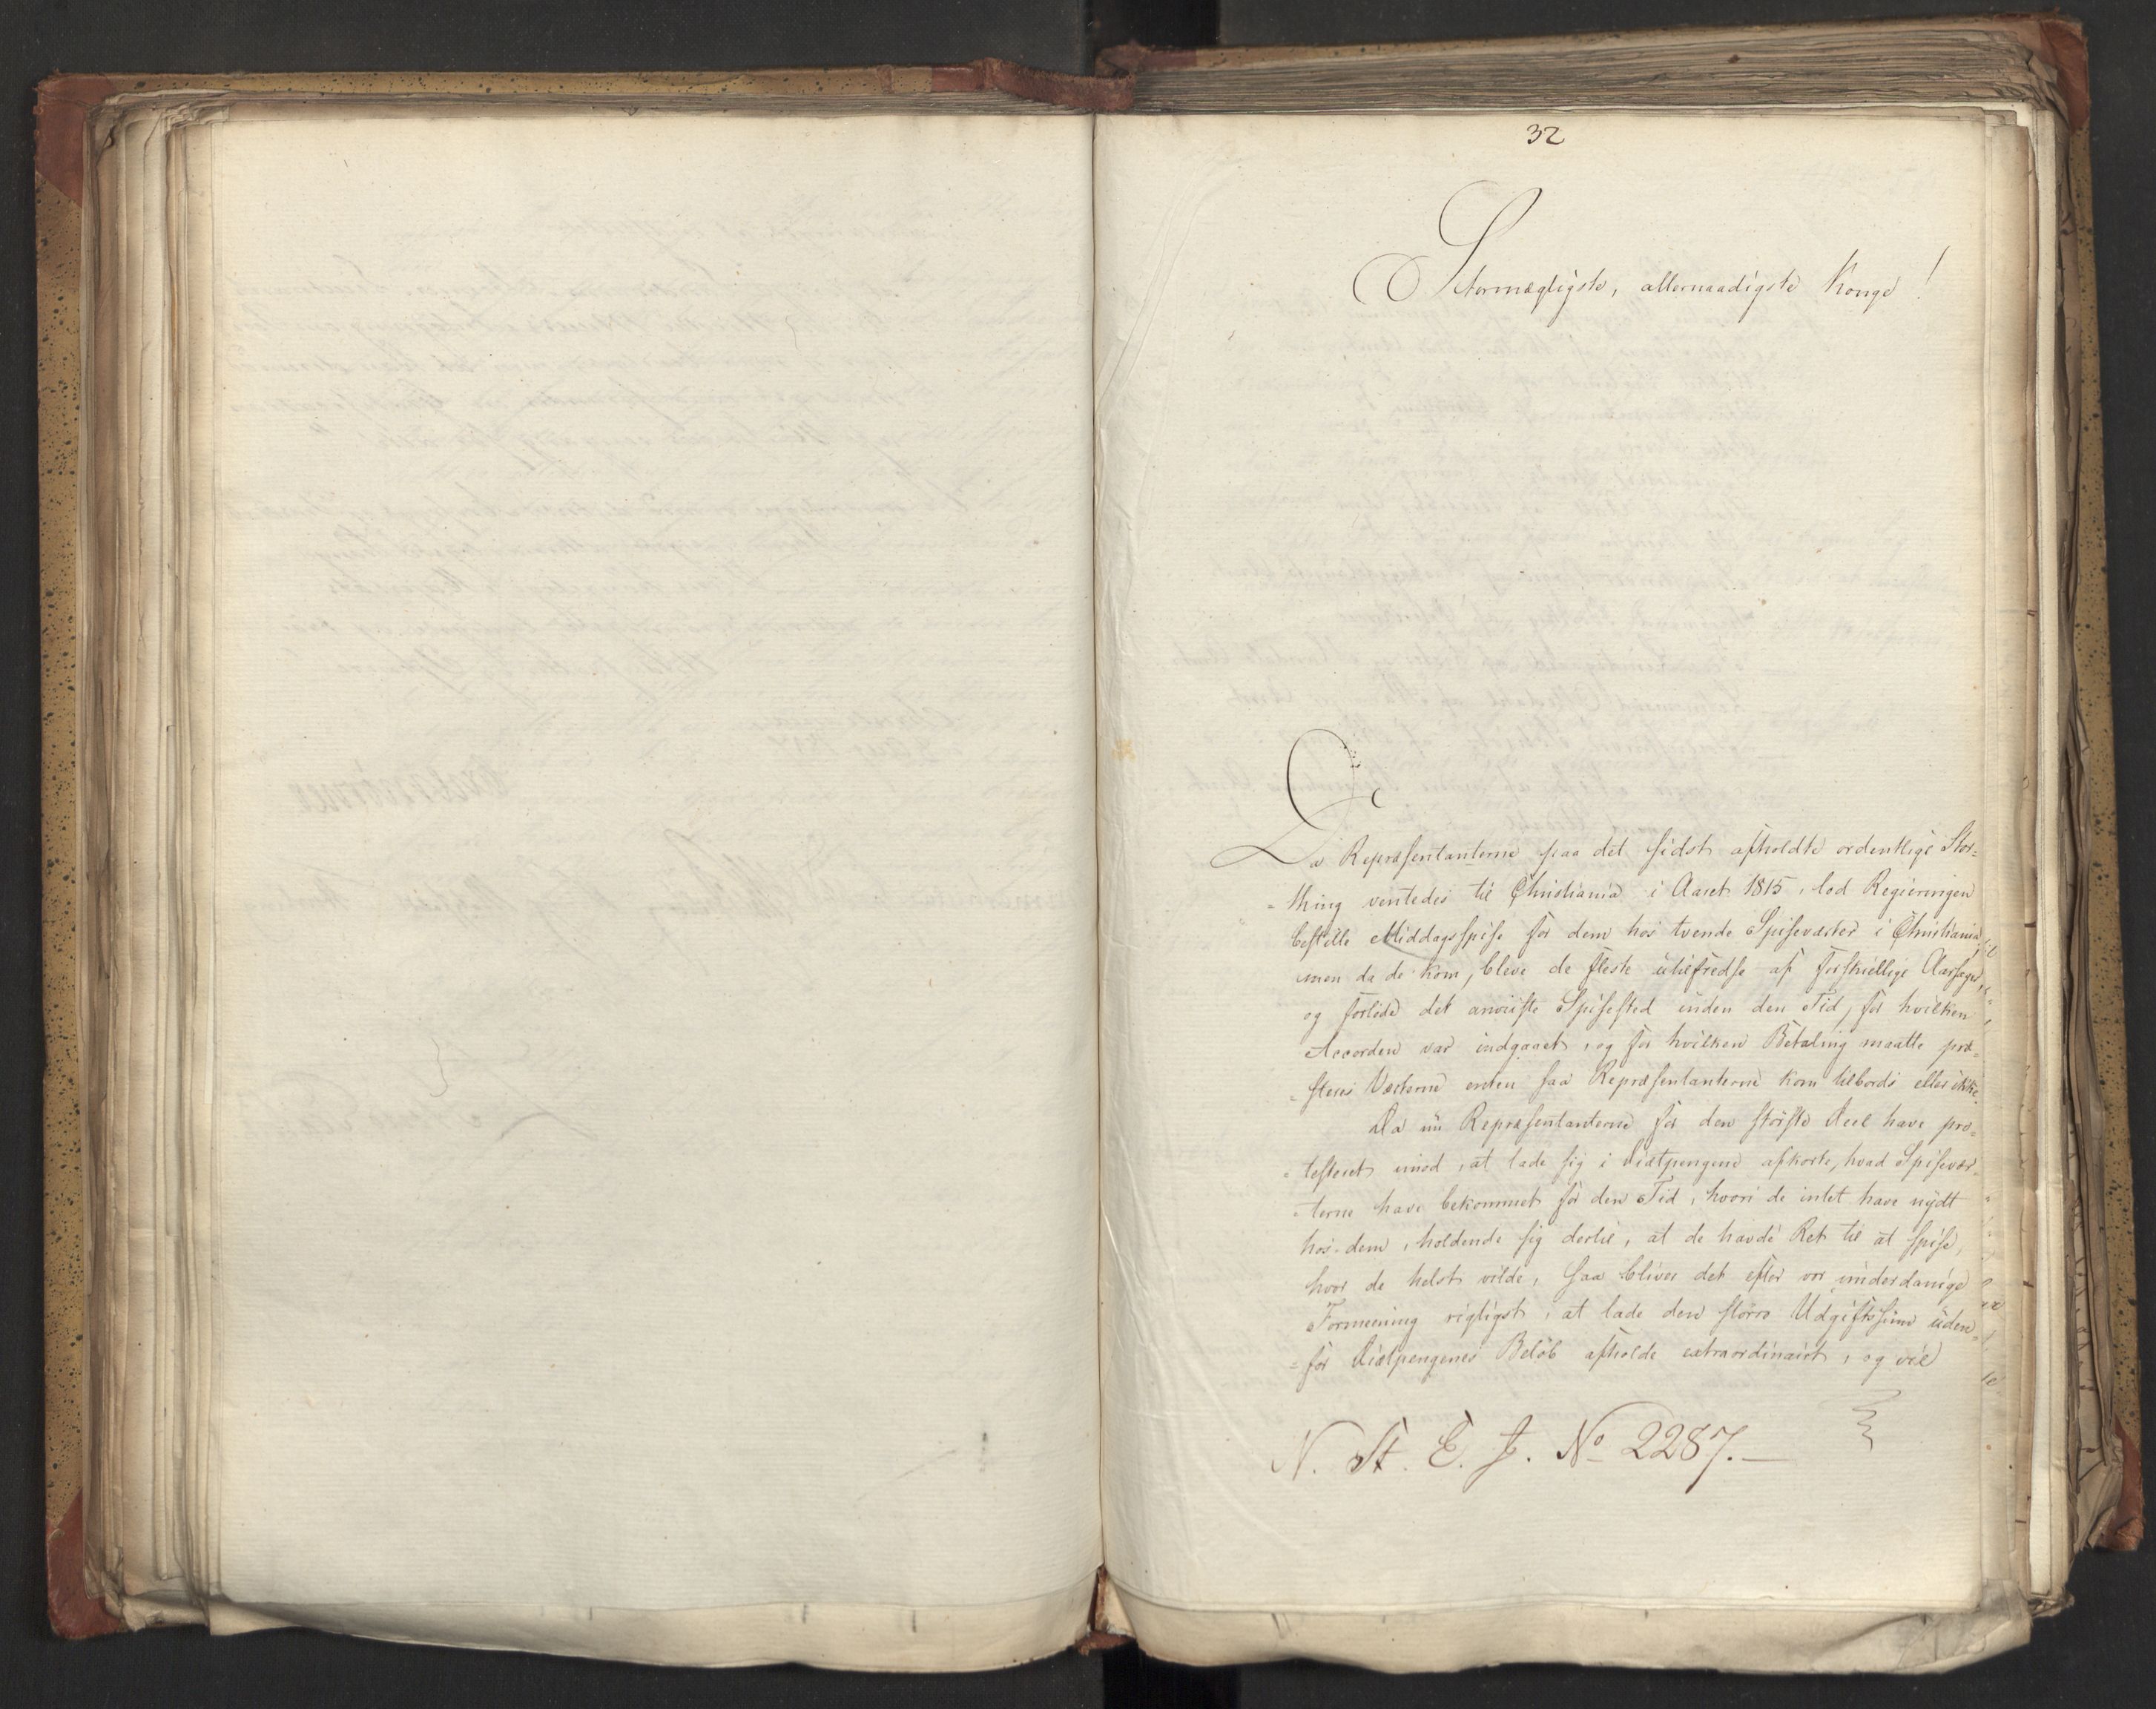 32
Stormægtigste, allernaadigste Konge!
Da Repræsentanterne paa det sidst afholdte ordentlige Stor=
=thing ventedes til Christiania i Aaret 1815, lod Regieringen
bestille Middagsspise for dem hos tvende Spiseværter i Christiania,
men da de kom, bleve de fleste utilfredse af forskiellige Aarsager,
og forlode det anviiste Spisested inden den Tid, for hvilken
Accorden var indgaaet, og for hvilken Betaling maatte præ=
=steres Værterne enten saa Repræsentanterne kom tilbords eller ikke.
Da nu Repræsentanterne for den største Deel have pro=
=testeret imod, at lade sig i Diætpengene afkorte, hvad Spisevær=
=terne have bekommet for den Tid, hvori de intet have nydt
hos dem, holdende sig dertil, at de havde Ret til at spise,
hvor de helst vilde, saa bliver det efter vor underdanige
Formeening rigtigst, at lade den større Udgiftssum uden=
=for Diætpengenes Beløb afholde extraordinairt, og vil
N. St. E. J. No 2287.—